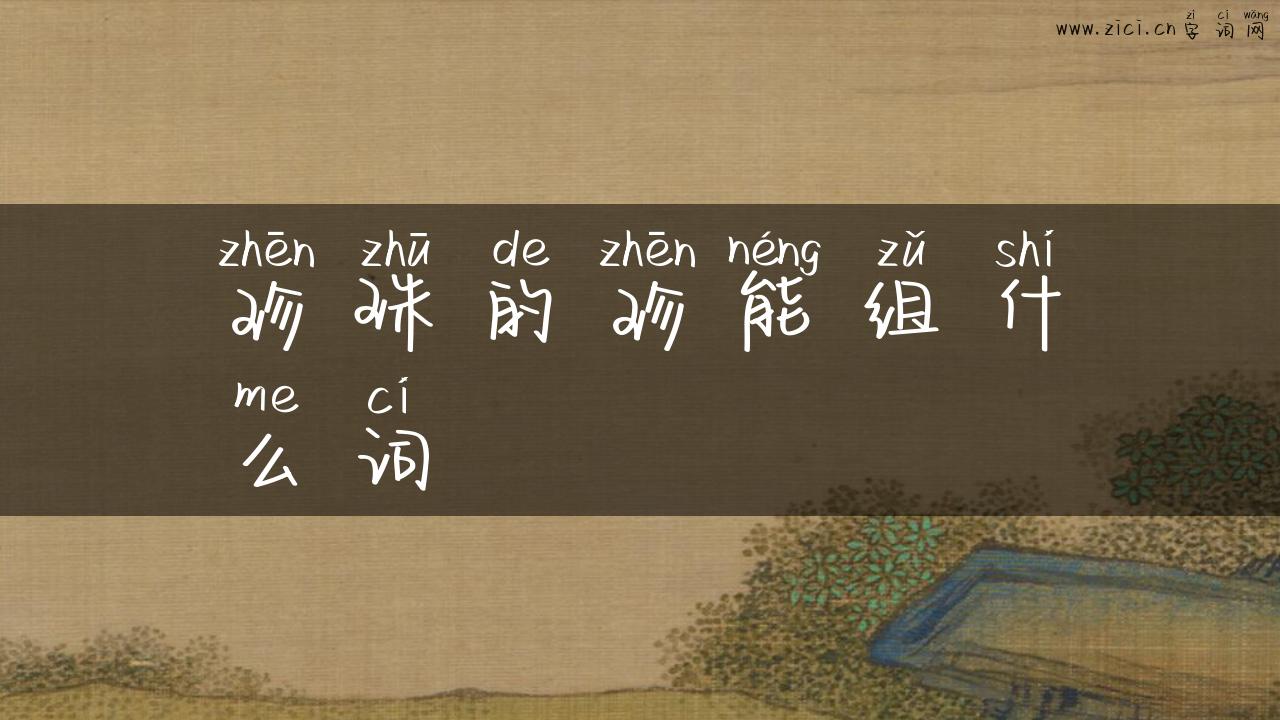 zì cí wǎng
www.zici.cn 字 词 网
zhēn zhū de zhēn néng zǔ shí
珍 珠 的 珍 能 组 什
me cí
么 词